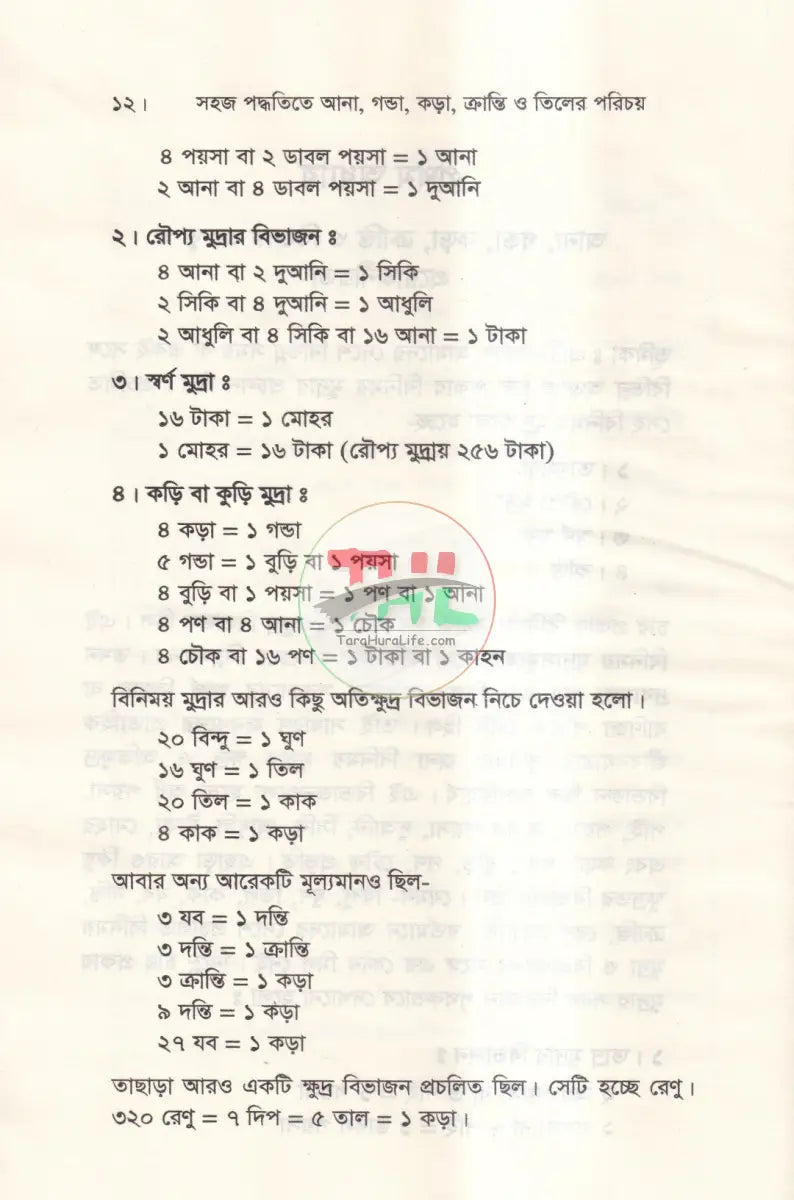 ১২। সহজ পদ্ধতিতে আনা, গন্ডা, কড়া, ক্রান্তি ও তিলের পরিচয়
৪ পয়সা বা ২ ডাবল পয়সা = ১ আনা
২ আনা বা ৪ ডাবল পয়সা = ১ দুআনি
২। রৌপ্য মুদ্রার বিভাজন ঃ
৪ আনা বা ২ দুআনি = ১ সিকি
২ সিকি বা ৪ দুআনি = ১ আধুলি
২ আধুলি বা ৪ সিকি বা ১৬ আনা = ১ টাকা
৩। স্বর্ণ মুদ্রা ঃ
১৬ টাকা = ১ মোহর
১ মোহর = ১৬ টাকা (রৌপ্য মুদ্রায় ২৫৬ টাকা)
৪। কড়ি বা কুড়ি মুদ্রা ঃ
৪ কড়া = ১ গন্ডা
৫ গন্ডা = ১ বুড়ি বা ১ পয়সা
৪ বুড়ি বা ১ পয়সা = ১ পণ বা ১ আনা
THL
৪ পণ বা ৪ আনা = ১ চৌক
TarqHuraLife.com
৪ চৌক বা ১৬ পণ = ১ টাকা বা ১ কাহন
বিনিময় মুদ্রার আরও কিছু অতিক্ষুদ্র বিভাজন নিচে দেওয়া হলো।
২০ বিন্দু = ১ ঘুণ
১৬ ঘুণ = ১ তিল
২০ তিল = ১ কাক
৪ কাক = ১ কড়া
আবার অন্য আরেকটি মূল্যমানও ছিল-
৩ যব = ১ দন্তি
৩ দন্তি = ১ ক্রান্তি
৩ ক্রান্তি = ১ কড়া
৯ দন্তি = ১ কড়া
২৭ যব = ১ কড়া
তাছাড়া আরও একটি ক্ষুদ্র বিভাজন প্রচলিত ছিল। সেটি হচ্ছে রেণু।
৩২০ রেণু = ৭ দিপ = ৫ তাল = ১ কড়া।